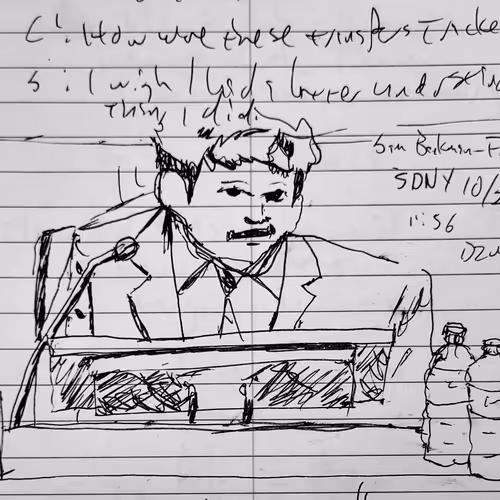 C: How were these transfers tracke
S: I wish I had a better understanding
Thing I did.
Sam Bankman-F
SDNY 10/2
1:56